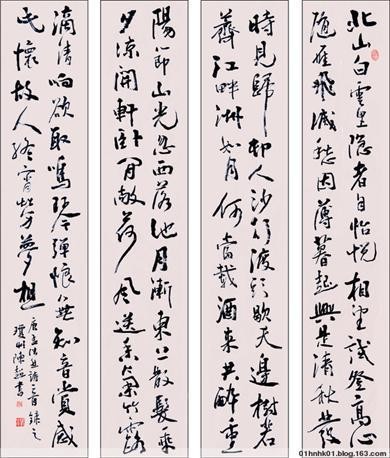 北山白雲里隐者自怡悦相望試登高心
随雁飛滅愁因薄暮起興是清秋發
時見歸村人沙行渡頭歇天邊樹若
薺江畔洲如月何當載酒來共醉重
陽節山光忽西落池月漸東上散髮乘
夕涼開軒卧閑敞荷風送香氣竹露
滴清响欲取鳴琴彈恨無知音賞感
此懷故人終宵勞夢想
唐孟浩然詩二首錄之
瓊州陳書
01hnhk01.blog.163.com